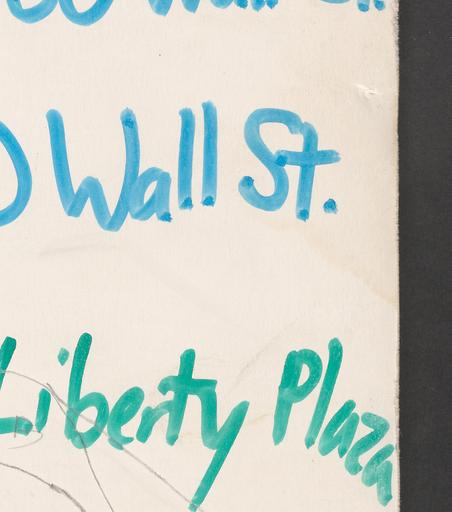 Wall St.
0 Wall St.
Liberty Plaza